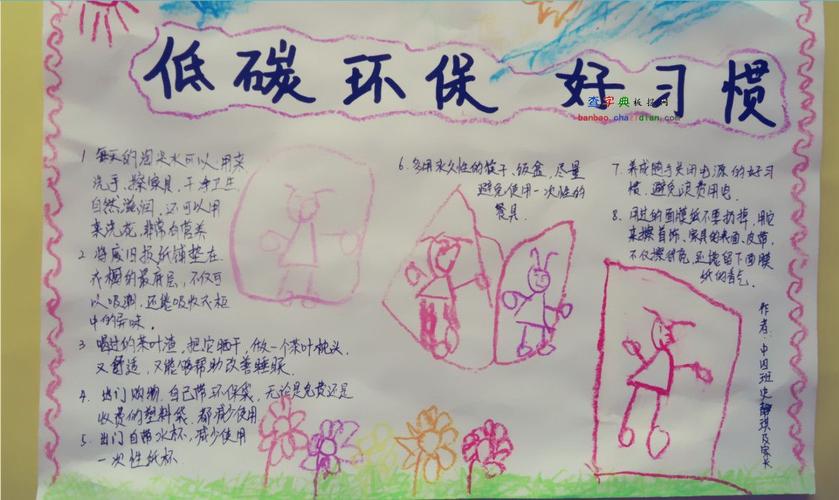 低碳环保 好习惯
查字典板报网
banbao.chazidian.com
1 每天的淘米水可以用来
洗手、擦家具,干净卫生
自然滋润,还可以用
来浇花,非常有营养
2 将废旧报纸铺垫在
衣橱的最底层,不仅可
以吸潮,还能吸收衣柜
中的异味。
3 喝过的茶叶渣,把它晒干,做一个茶叶枕头,
又舒适,又能够帮助改善睡眠
4. 出门购物,自己带环保袋,无论是免费还是
收费的塑料袋,都减少使用
5. 出门自带水杯,减少使用
一次性纸杯
6. 多用永久性的筷子、饭盒,尽量
避免使用一次性的
餐具.
7. 养成随手关闭电源的好习
惯,避免浪费用电.
8. 用过的面膜纸不要扔掉,用它
来擦首饰、家具的表面、皮带,
不仅擦得亮,还能留下面膜
纸的香气.
作者:中四班史琪及家长